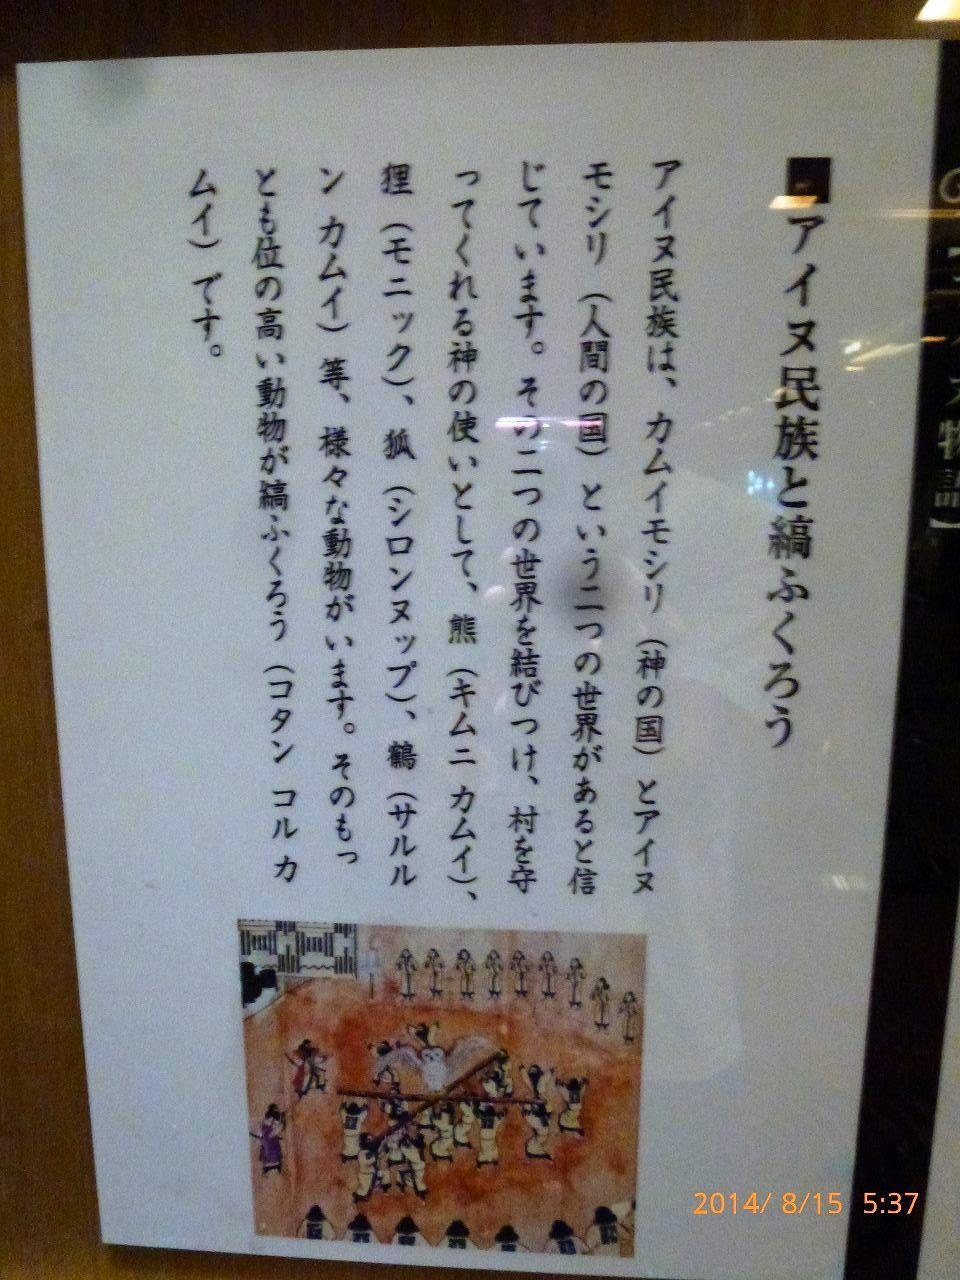 ■アイヌ民族と縞ふくろう
アイヌ民族は、カムイモシリ（神の国）とアイヌ
モシリ（人間の国）という二つの世界があると信
じています。その二つの世界を結びつけ、村を守
ってくれる神の使いとして、熊（キムニ カムイ）、
狸（モニック）、狐（シロンヌップ）、鶴（サルル
ン カムイ）等、様々な動物がいます。そのもっ
とも位の高い動物が縞ふくろう（コタン コル カ
ムイ）です。
2014/ 8/15 5:37